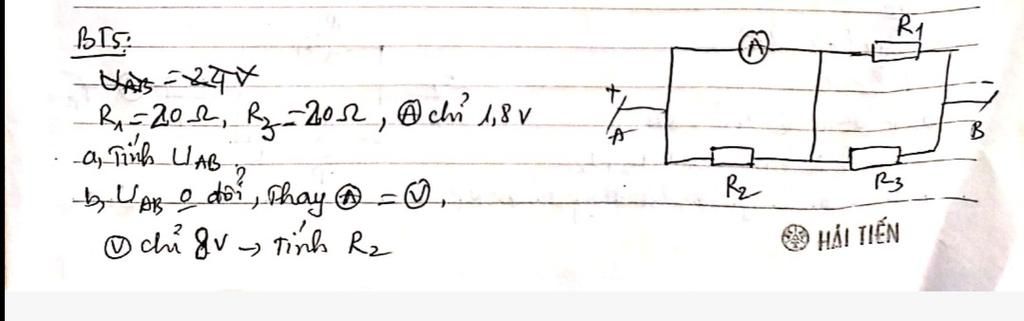 BT5:
U_AB = 24V
R1 = 20 Ω, R3 = 20 Ω, Ⓐ chỉ 1,8 V
a, Tính U_AB.
b, U_AB o đổi, Thay Ⓐ = Ⓥ,
Ⓥ chỉ 8V → Tính R2
A
R1
+
A
-
B
R2
R3
HẢI TIẾN